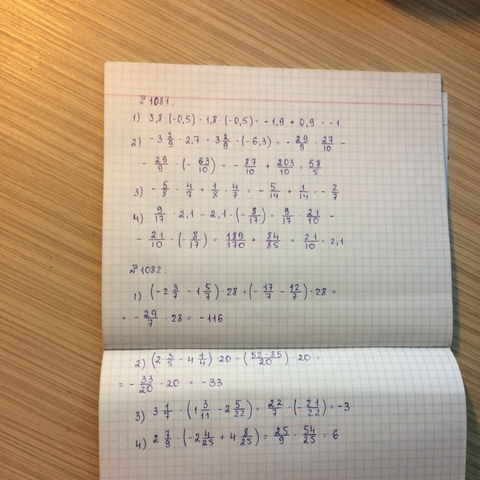 №1081.
1) 3,8 · (-0,5) - 1,8 · (-0,5) = -1,9 + 0,9 = -1
2) -3 2/9 · 2,7 - 3 2/9 · (-6,3) = - 29/9 · 27/10 -
- 29/9 · (- 63/10) = - 87/10 + 203/10 = 58/5
3) - 5/8 · 4/7 + 1/8 · 4/7 = - 5/14 + 1/14 = - 2/7
4) 9/17 · 2,1 - 2,1 · (- 8/17) = 9/17 · 21/10 -
- 21/10 · (- 8/17) = 189/170 + 84/85 = 21/10 = 2,1
№1082.
1) (-2 3/7 - 1 5/7) · 28 = (- 17/7 - 12/7) · 28 =
= - 29/7 · 28 = -116
2) (2 3/5 - 4 1/4) · 20 = (52 - 85/20) · 20 =
= - 33/20 · 20 = -33
3) 3 1/7 · (1 3/11 - 2 5/22) = 22/7 · (- 21/22) = -3
4) 2 7/9 · (-2 4/25 + 4 8/25) = 25/9 · 54/25 = 6